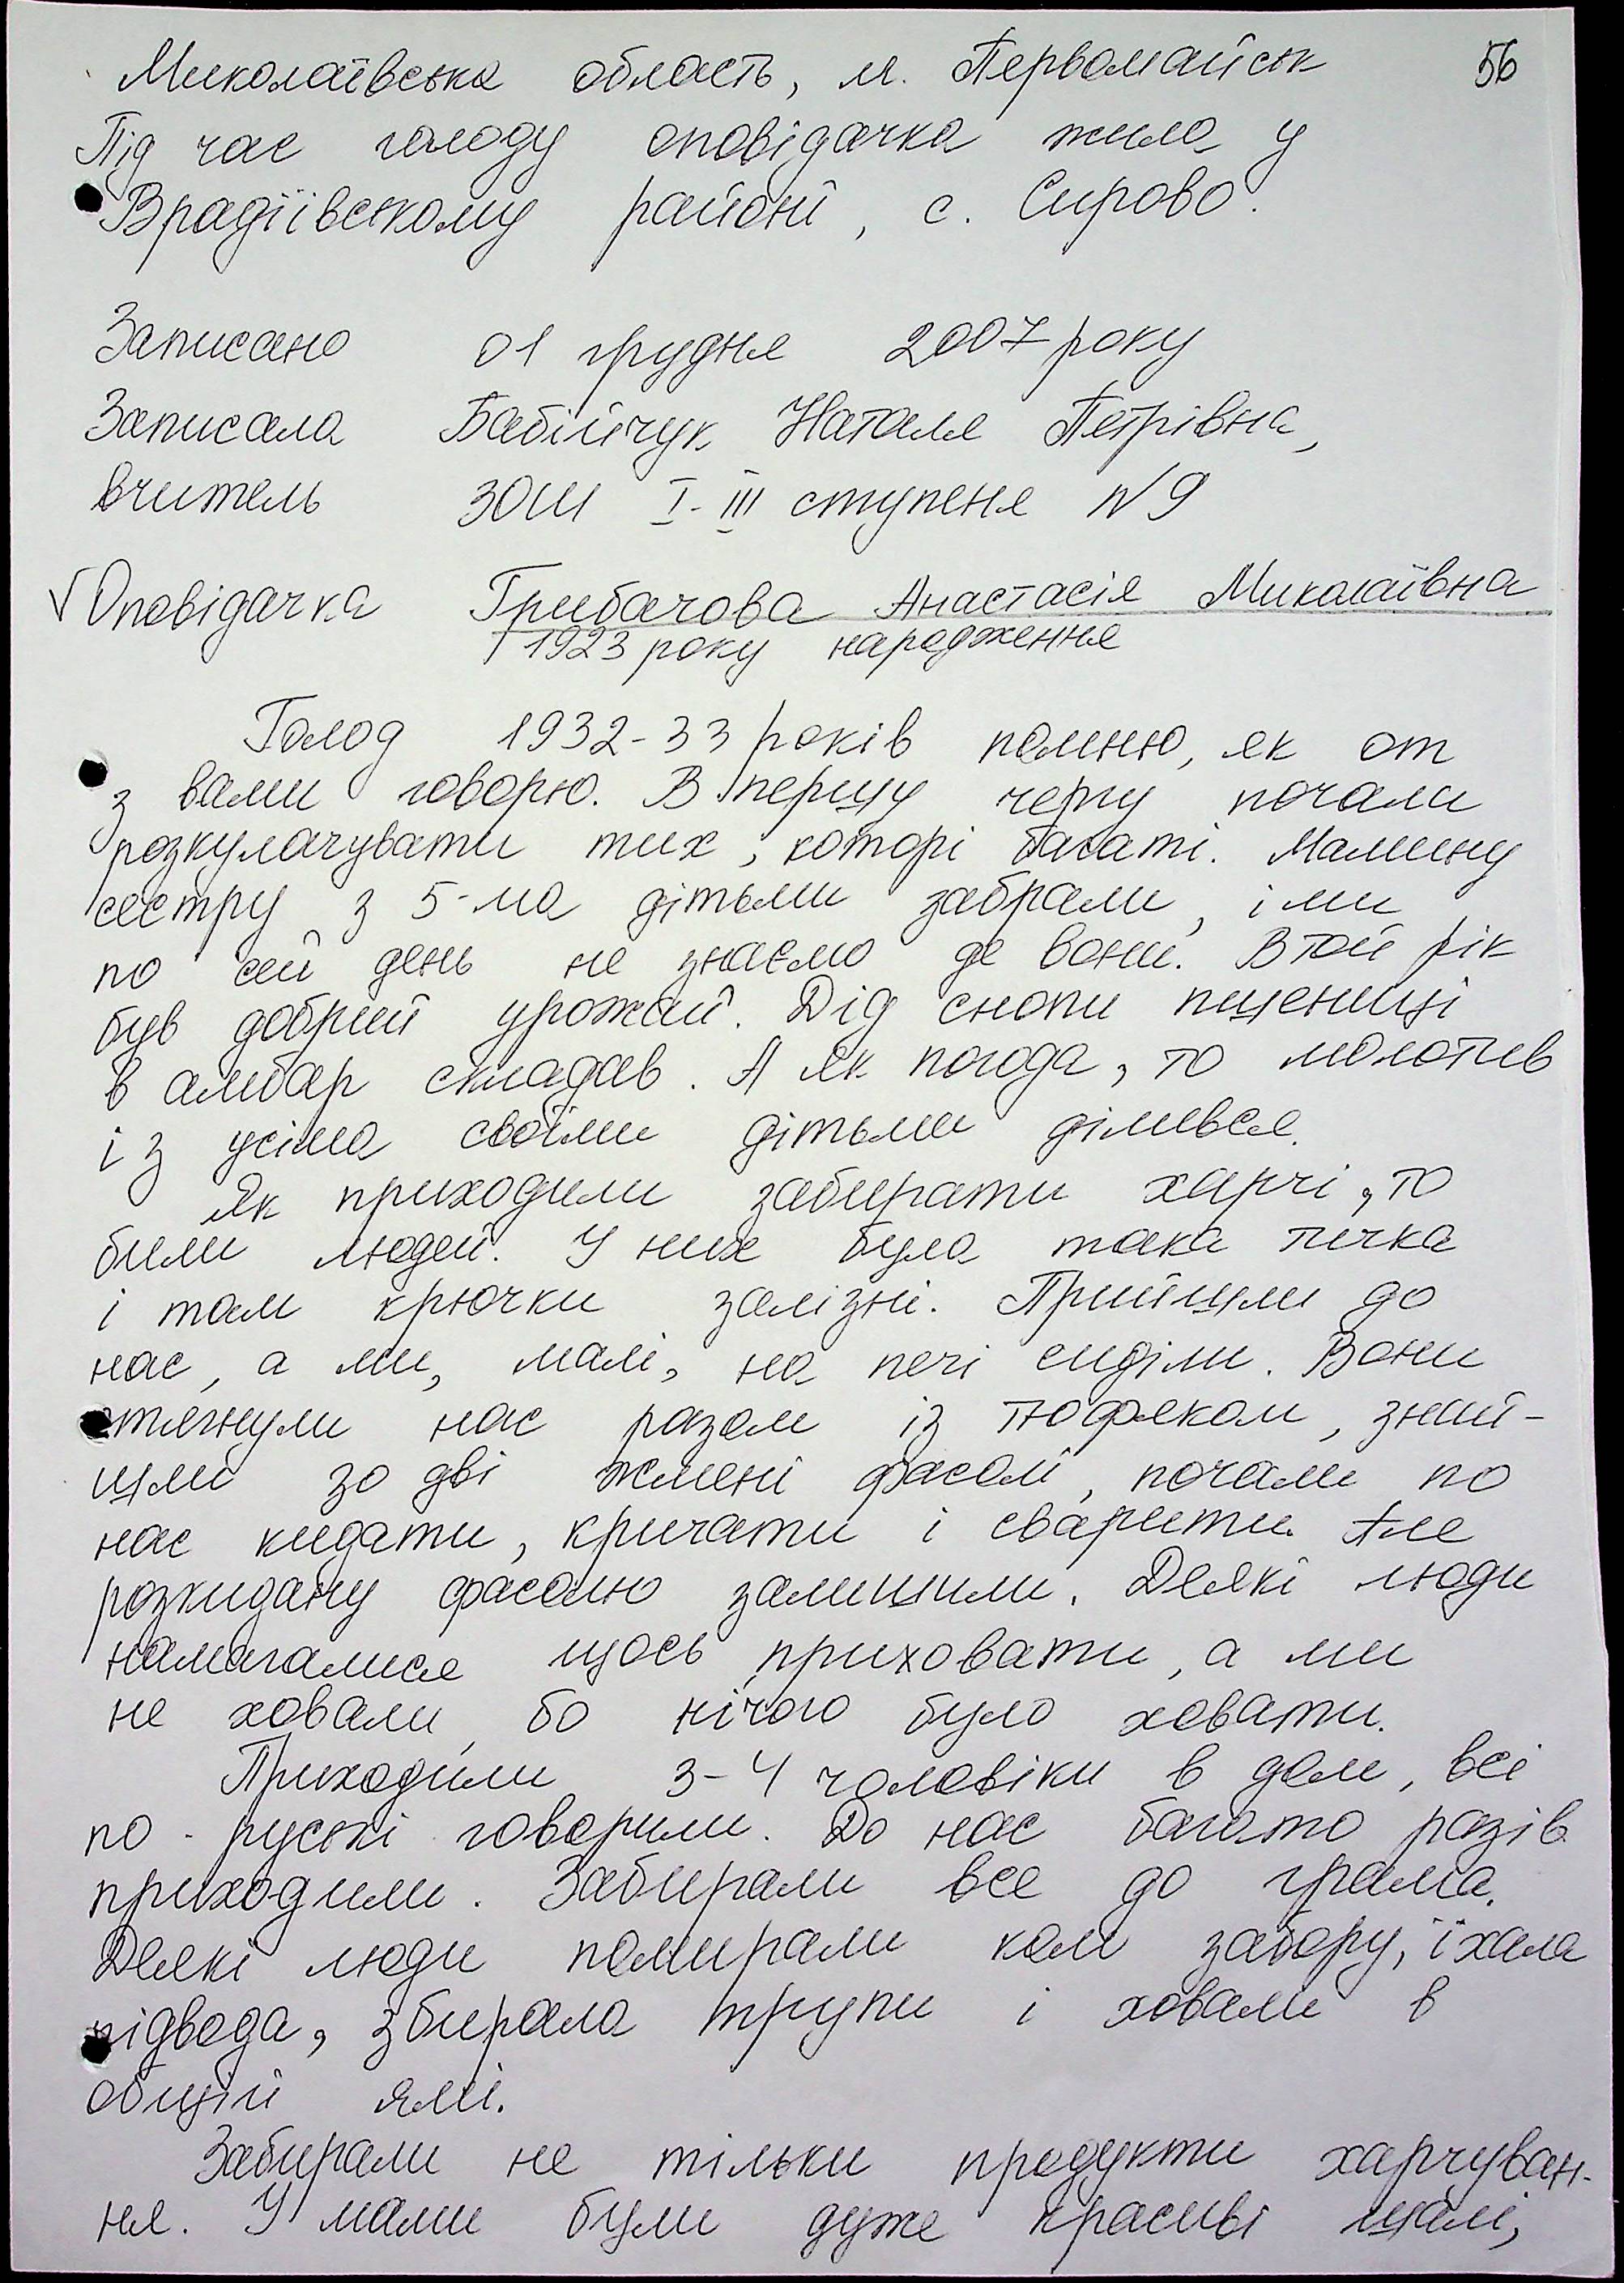 Миколаївська область, м. Первомайськ 56
Під час голоду оповідачка жила у
Врадіївському районі, с. Сирово.
Записано 01 грудня 2007 року
Записала Бабійчук Наталя Петрівна,
вчитель ЗОШ I-III ступеня №9
√ Оповідачка Грибачова Анастасія Миколаївна
1923 року народження
Голод 1932-33 років помню, як от
з вами говорю. В першу чергу почали
розкулачувати тих, которі багаті. Мамину
сестру з 5-ма дітьми забрали, і ми
по сей день не знаємо де вони. В той рік
був добрий урожай. Дід снопи пшениці
в амбар складав. А як погода, то молотив
і з усіма своїми дітьми ділився.
Як приходили забирати харчі, то
били людей. У них була така пічка
і там крючки залізні. Прийшли до
нас, а ми, малі, на печі сиділи. Вони
стягнули нас разом із тюфяком, знай-
шли зо дві жмені фасолі, почали по
нас кидати, кричати і сварити. Але
розкидану фасолю залишили. Деякі люди
намагалися щось приховати, а ми
не ховали, бо нічого було ховати.
Приходили 3-4 чоловіки в дом, всі
по-руські говорили. До нас багато разів
приходили. Забирали все до грама.
Деякі люди помирали коли забору, їхала
підвода, збирала трупи і ховали в
общій ямі.
Забирали не тільки продукти харчуван-
ня. У мами були дуже красиві шалі,